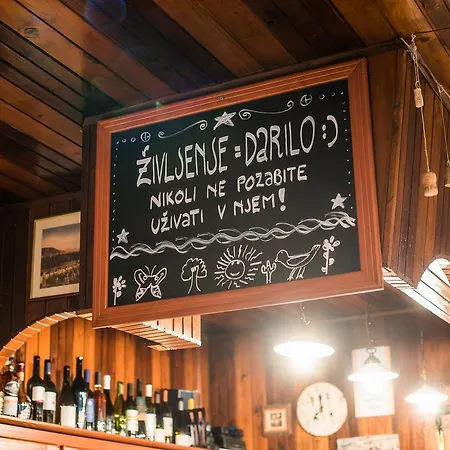 ŽIVLJENJE = DARILO :)
NIKOLI NE POZABITE
UŽIVATI V NJEM!